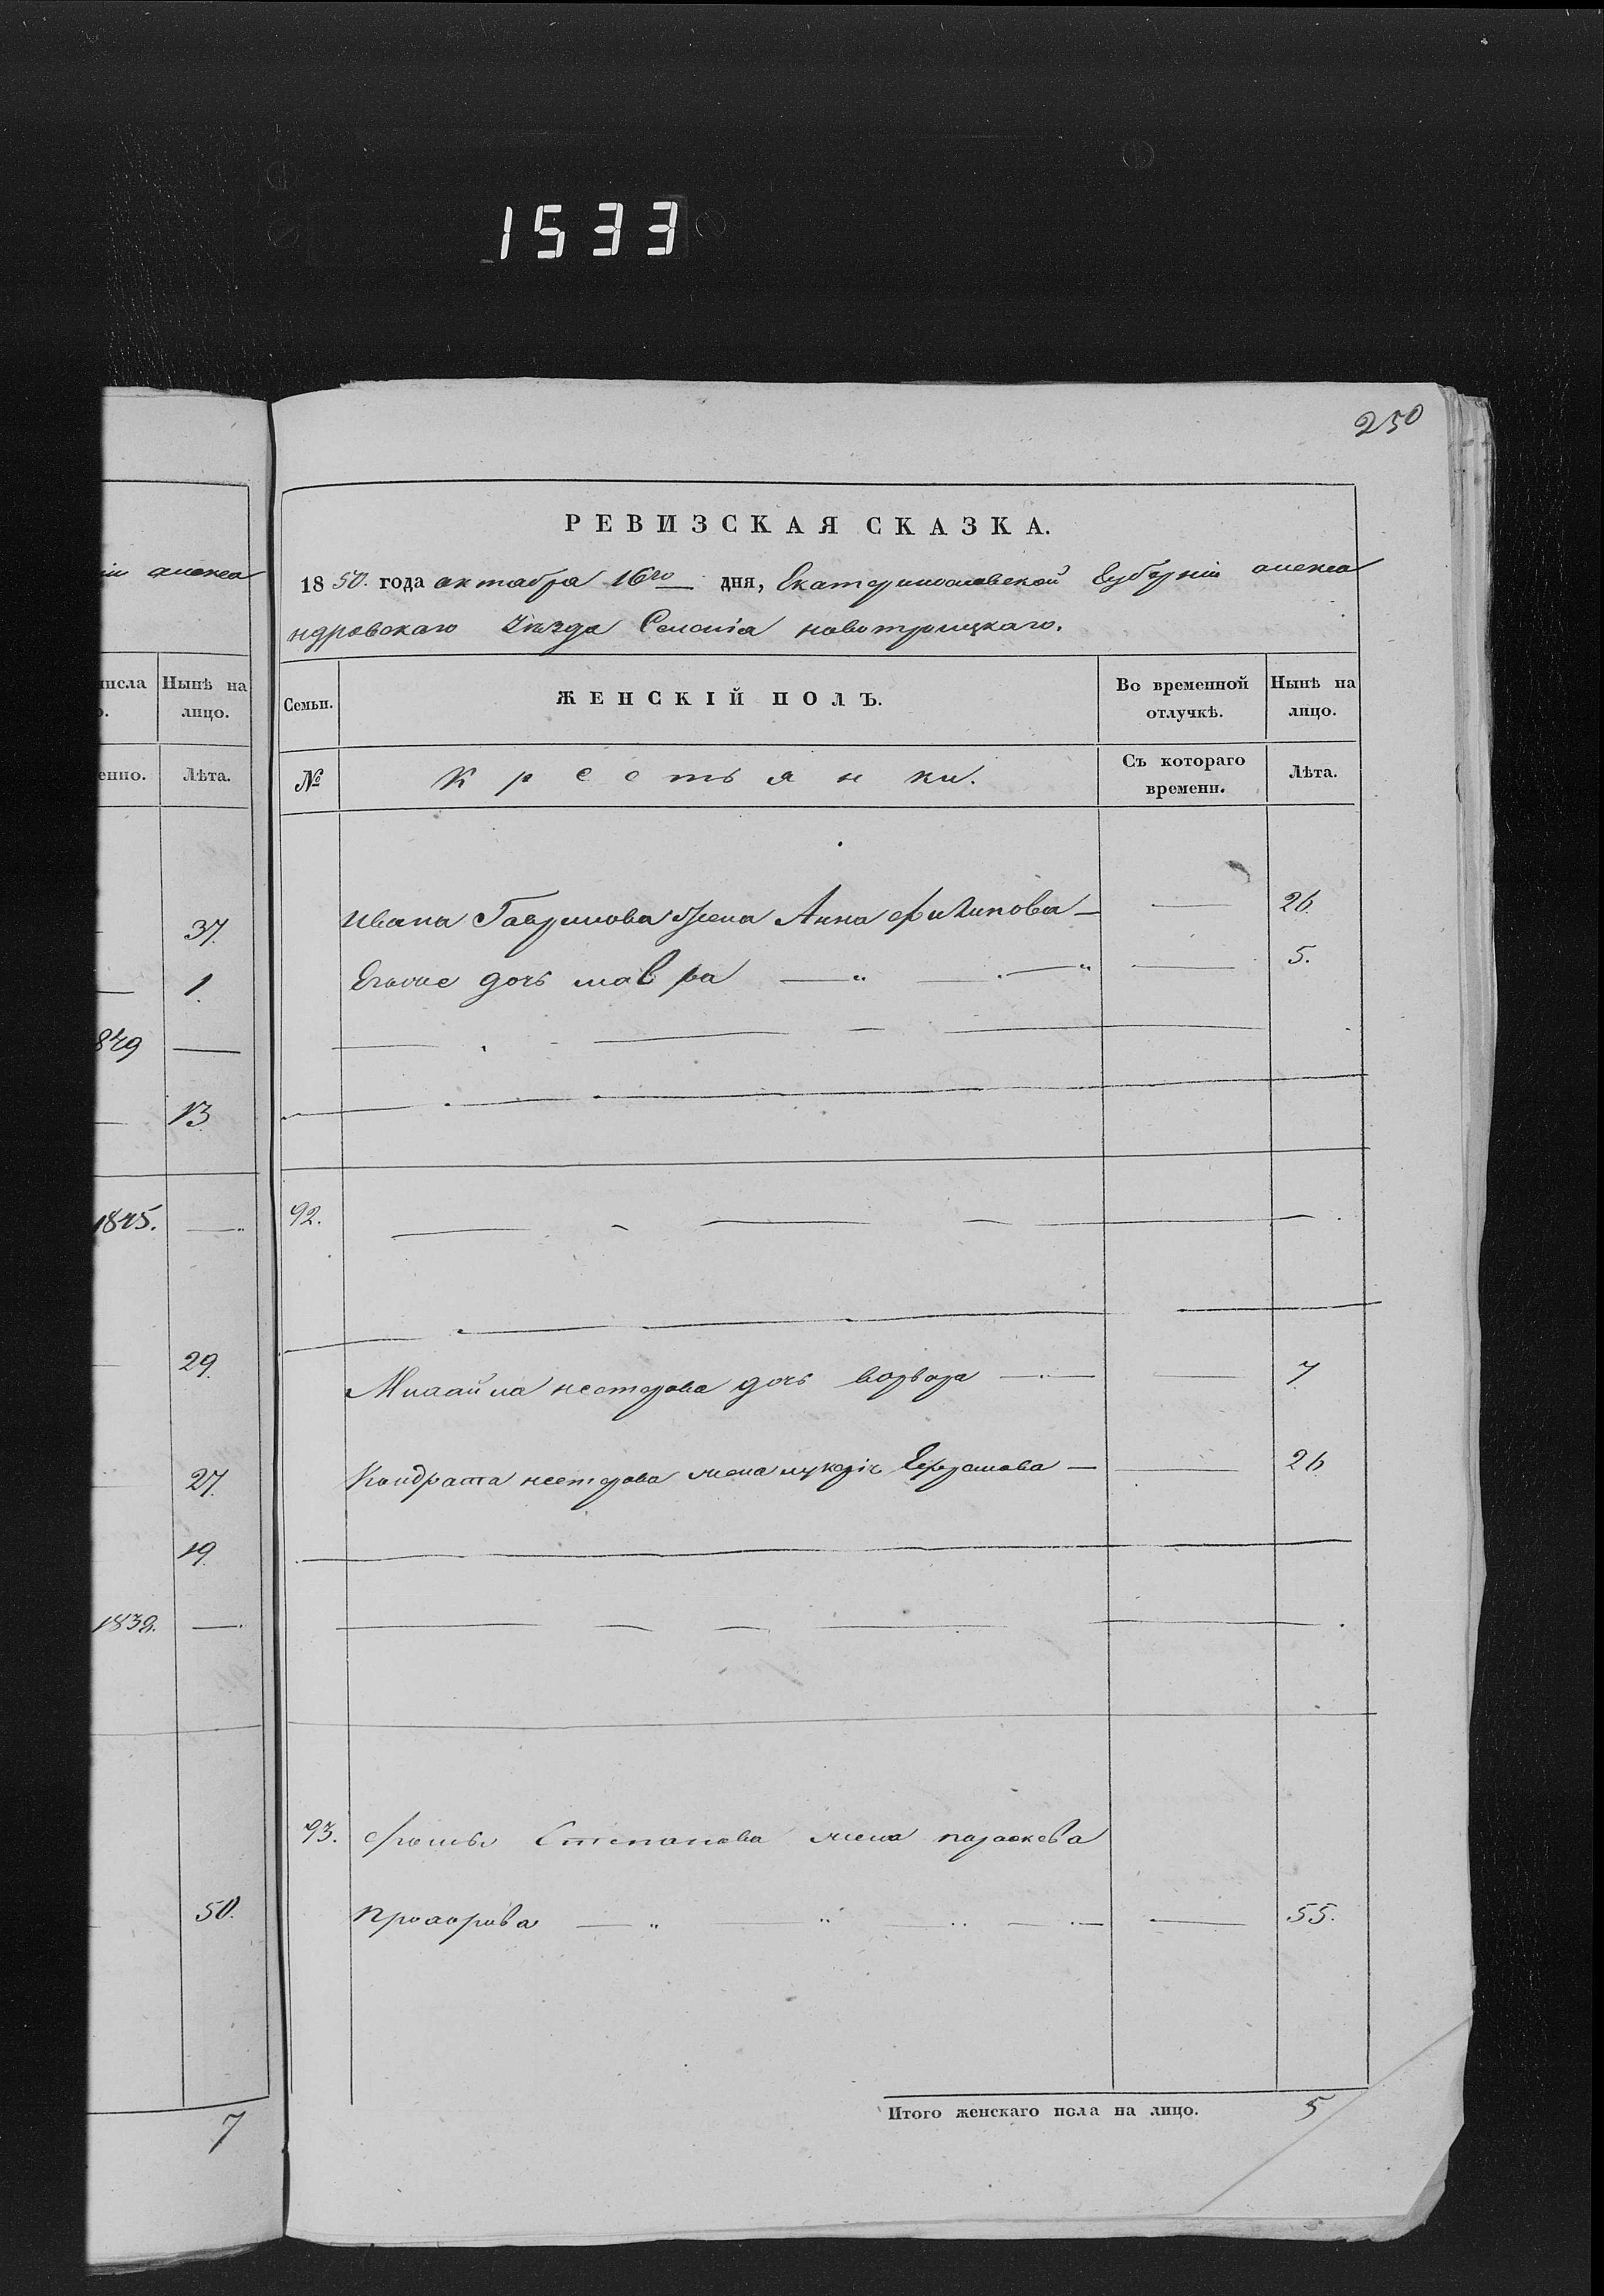 1533
250
РЕВИЗСКАЯ СКАЗКА.
1850. года октабра 16го дня, Екатеринославской Губерніи алекса
ндровскаго Уѣзда Селенія новотроицкаго.
Семьи.
ЖЕНСКІЙ ПОЛЪ.
Во временной отлучкѣ.
Нынѣ на лицо.
№
Крестьянки.
Съ котораго времени.
Лѣта.
Ивана Гаврилова жена Анна филипова — 26.
Егоже дочь мавра 5.
92.
Михайла нестерова дочь варвара 7
Кондрата нестерова жена лукеріа 26
93. фомы Степанова жена параскева
прохорова 55.
Итого женскаго пола на лицо. 5
алекса
числа
Нынѣ на лицо.
енно.
Лѣта.
37.
1.
849
13
1845.
29.
27.
19.
1839.
50.
7